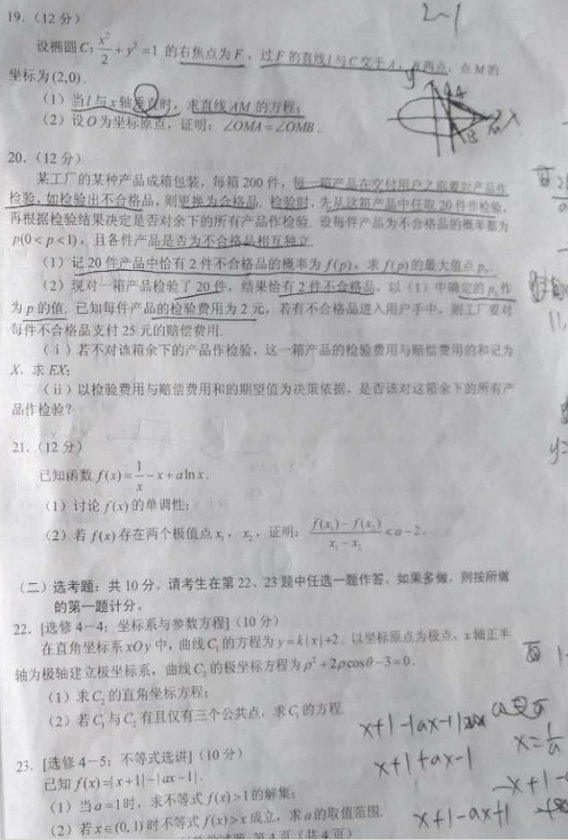 2-1
19.（12分）
设椭圆C: x²/2 + y² = 1 的右焦点为F，过F的直线l与C交于A，B两点，点M的
坐标为(2,0).
（1）当l与x轴垂直时，求直线AM的方程；
（2）设O为坐标原点，证明：∠OMA=∠OMB.
20.（12分）
某工厂的某种产品成箱包装，每箱200件，每一箱产品在交付用户之前要对产品作
检验，如检验出不合格品，则更换为合格品.检验时，先从这箱产品中任取20件作检验，
再根据检验结果决定是否对余下的所有产品作检验.设每件产品为不合格品的概率都为
p(0<p<1)，且各件产品是否为不合格品相互独立.
（1）记20件产品中恰有2件不合格品的概率为f(p)，求f(p)的最大值点p₀.
（2）现对一箱产品检验了20件，结果恰有2件不合格品，以（1）中确定的p₀作
为p的值.已知每件产品的检验费用为2元，若有不合格品进入用户手中，则工厂要对
每件不合格品支付25元的赔偿费用.
（i）若不对该箱余下的产品作检验，这一箱产品的检验费用与赔偿费用的和记为
X，求EX；
（ii）以检验费用与赔偿费用和的期望值为决策依据，是否该对这箱余下的所有产
品作检验？
21.（12分）
已知函数 f(x)=1/x - x + a ln x.
（1）讨论f(x)的单调性；
（2）若f(x)存在两个极值点x₁，x₂，证明：(f(x₁)-f(x₂))/(x₁-x₂) < a-2.
（二）选考题：共10分，请考生在第22、23题中任选一题作答，如果多做，则按所做
的第一题计分。
22.[选修4－4：坐标系与参数方程]（10分）
在直角坐标系xOy中，曲线C₁的方程为y=k|x|+2.以坐标原点为极点，x轴正半
轴为极轴建立极坐标系，曲线C₂的极坐标方程为ρ²+2ρcosθ-3=0.
（1）求C₂的直角坐标方程；
（2）若C₁与C₂有且仅有三个公共点，求C₁的方程.
x+1-|ax-1|
x=1/a
x+1+ax-1
23.[选修4－5：不等式选讲]（10分）
已知f(x)=|x+1|-|ax-1|.
（1）当a=1时，求不等式f(x)>1的解集；
（2）若x∈(0,1)时不等式f(x)>x成立，求a的取值范围.
x+1-ax+1
第4页（共4页）